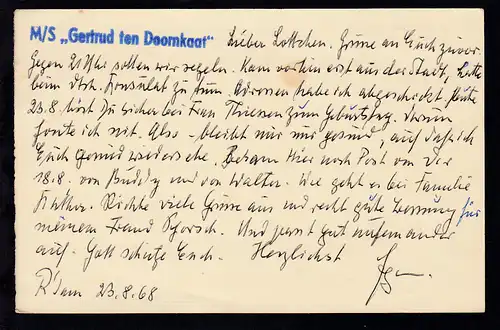 M/S „Gertrud ten Doornkaat" Lieber Lottchen. Grüsse an Euch zuvor.
Gegen 21 Uhr sollen wir segeln. Kam vorhin erst aus der Stadt, hatte
beim dtsch. Konsulat zu tun. Adressen habe ich abgeschickt. Heute
23.8 bist Du sicher bei Frau Thiessen zum Geburtstag. Warum
konnte ich mit. Also – bleibt mir nur gesund, auf dass ich
Euch gesund wiedersehe. Bekam hier noch Post von der
18.8. von Buddy und von Walter. Wie geht es bei Familie
Richte viele Grüsse aus und recht gute Besserung für
meinem Freund Schorsch. Und passt gut aufeinander
auf. Gott schütze Euch. Herzlichst
R'dam 23.8.68